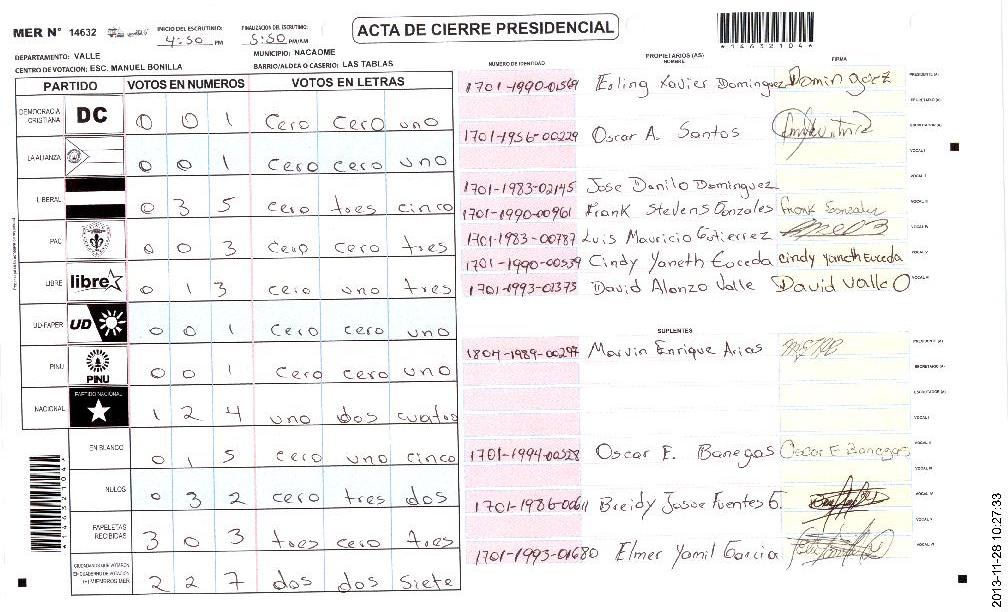 MER N° 14632
INICIO DEL ESCRUTINIO: 4:50 PM
FINALIZACION DEL ESCRUTINIO: 5:50 PM/AM
ACTA DE CIERRE PRESIDENCIAL
*14632104*
DEPARTAMENTO: VALLE
MUNICIPIO: NACAOME
CENTRO DE VOTACION: ESC. MANUEL BONILLA
BARRIO/ALDEA O CASERIO: LAS TABLAS
PARTIDO VOTOS EN NUMEROS VOTOS EN LETRAS
DEMOCRACIA CRISTIANA DC 0 0 1 Cero Cero uno
LA ALIANZA 0 0 1 Cero cero uno
LIBERAL 0 3 5 cero tres cinco
PAC 0 0 3 cero cero tres
LIBRE libre 0 1 3 cero uno tres
UD-FAPER UD 0 0 1 Cero cero uno
PINU PINU 0 0 1 Cero cero uno
NACIONAL PARTIDO NACIONAL 1 2 4 uno dos cuatro
EN BLANCO 0 1 5 cero uno cinco
NULOS 0 3 2 cero tres dos
PAPELETAS RECIBIDAS 3 0 3 tres cero tres
CIUDADANOS QUE VOTARON EN CUADERNO DE VOTACION (+) MIEMBROS MER 2 2 7 dos dos siete
*14632104*
PROPIETARIOS (AS)
NUMERO DE IDENTIDAD NOMBRE FIRMA
1701-1990-01569 Erling Xavier Dominguez Dominguez PRESIDENTE (A)
SECRETARIO (A)
1701-1956-00229 Oscar A. Santos ESCRUTADOR (A)
VOCAL I
1701-1983-02145 Jose Danilo Dominguez VOCAL II
1701-1990-00961 Frank Stevens Gonzales Frank Gonzales VOCAL III
1701-1983-00787 Luis Mauricio Gutierrez VOCAL IV
1701-1990-00539 Cindy Yaneth Euceda cindy Yaneth Euceda VOCAL V
1701-1993-01375 David Alonzo Valle David Valle O VOCAL VI
SUPLENTES
1804-1989-00297 Marvin Enrique Arias PRESIDENTE (A)
SECRETARIO (A)
ESCRUTADOR (A)
VOCAL I
1701-1994-00528 Oscar E. Banegas Oscar E Banegas VOCAL II
VOCAL III
1701-1986-0061 Breidy Josue Fuentes G. VOCAL IV
VOCAL V
1701-1993-01680 Elmer Yamil Garcia VOCAL VI
2013-11-28 10:27:33